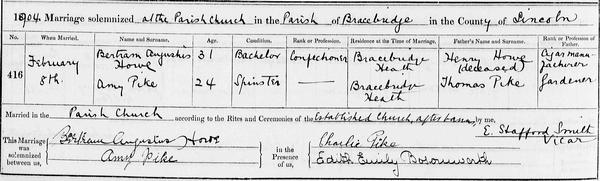 1904. Marriage solemnized at the Parish Church in the Parish of Bracebridge in the County of Lincoln
No. When Married. Name and Surname. Age. Condition. Rank or Profession. Residence at the Time of Marriage. Father's Name and Surname. Rank or Profession of Father.
416 February 8th. Bertram Augustus Howe 31 Bachelor Confectioner Bracebridge Heath Henry Howe (deceased) Cigar manufacturer
Amy Pike 24 Spinster — Bracebridge Heath Thomas Pike Gardener
Married in the Parish Church according to the Rites and Ceremonies of the Established Church, after banns, by me,
E. Stafford Smith
Vicar
This Marriage was solemnized between us, Bertram Augustus Howe
Amy Pike
in the Presence of us, Charlie Pike
Edith Emily